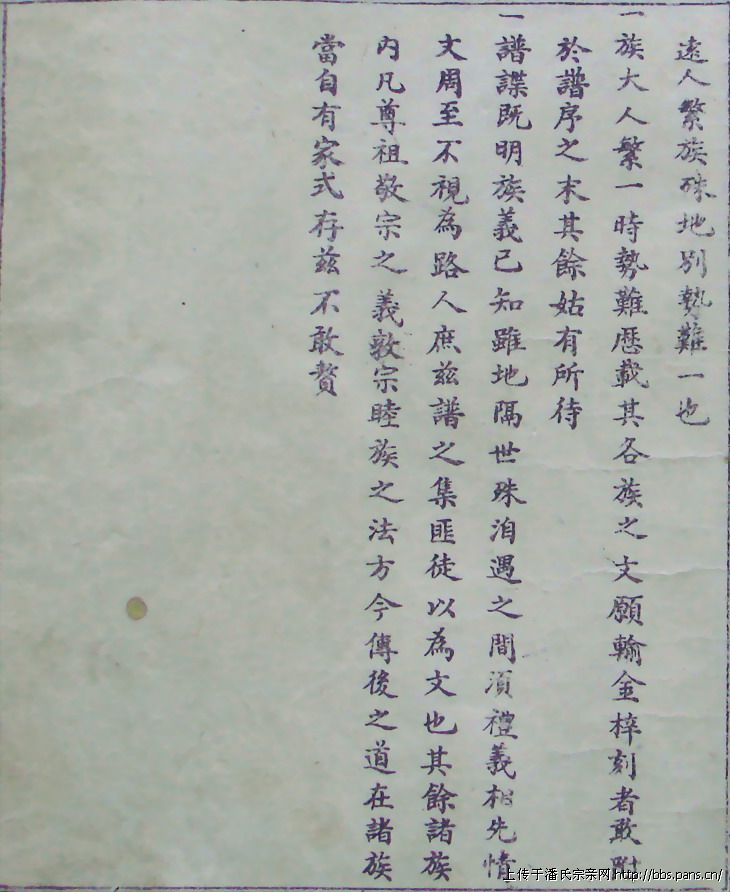 遠人繁族殊地別勢難一也
一族大人繁一時勢難歷載其各族之文願輸金梓刻者敢附
於譜序之末其餘姑有所待
一譜諜既明族義已知雖地隔世殊洎遇之間須禮義相先情
文周至不視為路人庶茲譜之集匪徒以為文也其餘諸族
內凡尊祖敬宗之義敦宗睦族之法方今傳後之道在諸族
當自有家式存茲不敢贅
上传于潘氏宗亲网http://bbs.pans.cn/